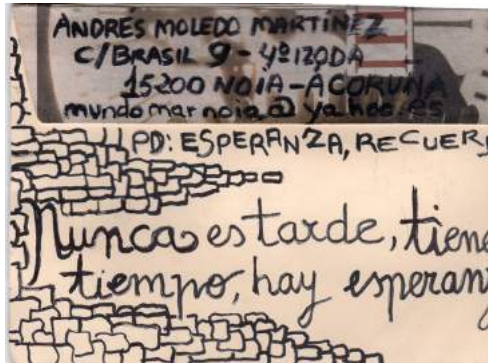 ANDRÉS MOLEDO MARTÍNEZ
C/BRASIL 9-4º IZQDA
15200 NOIA-A CORUÑA
mundomarnoia@yahoo.es
PD: ESPERANZA, RECUER
Nunca es tarde, tiene
tiempo, hay esperan